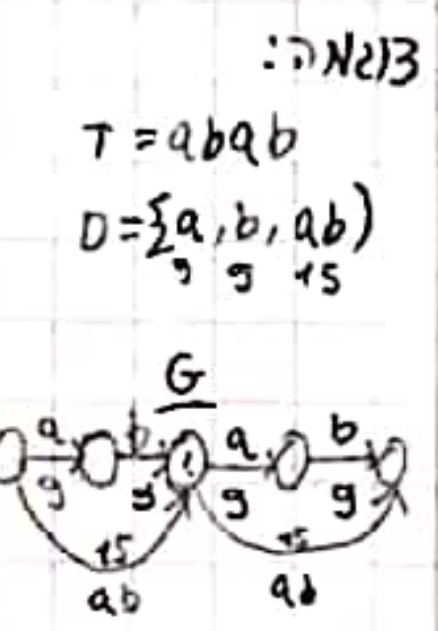 דוגמאה:
T = abab
D = {a, b, ab)
9 9 15
G
a b a b
9 9 9 9
15 15
ab ab